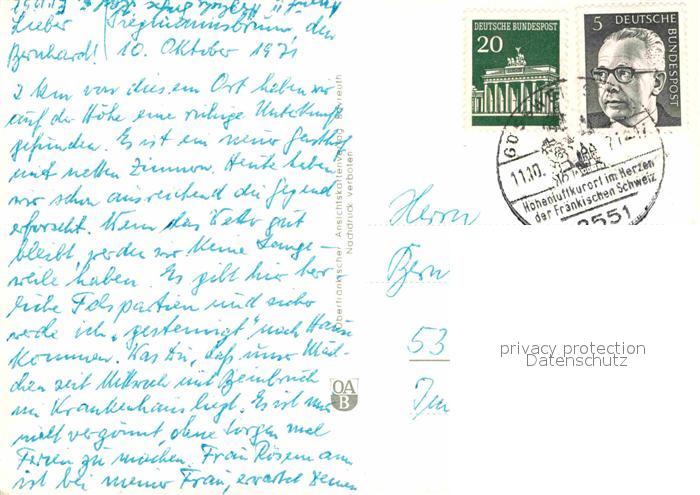 Lieber Sieglitzerbrunn, den
Bernhard! 10. Oktober 1971
2 km vor diesem Ort haben wir
auf der Höhe eine ruhige Unterkunft
gefunden. Es ist ein neuer Gasthof
mit netten Zimmern. Heute haben
wir schon ausreichend die Gegend
erforscht. Wenn das Wetter gut
bleibt werden wir keine Lange-
weile haben. Es gibt hier herr-
liche Felspartien und sicher
werde ich "gesteinigt" nach Hause
kommen. Was Du, daß unser Mäd-
chen seit Mittwoch mit Beinbruch
im Krankenhaus liegt. Es ist mir
nicht vergönnt, ohne Sorgen mal
Ferien zu machen. Frau Rösemann
ist bei meiner Frau, erwartet Deinen
Oberfränkischer Ansichtskartenverlag Bayreuth
Nachdruck verboten
OA
B
DEUTSCHE BUNDESPOST
20
5 DEUTSCHE
BUNDESPOST
11.10.
Höhenluftkurort im Herzen
der Fränkischen Schweiz
8551
Herrn
Bern
53
privacy protection
Datenschutz